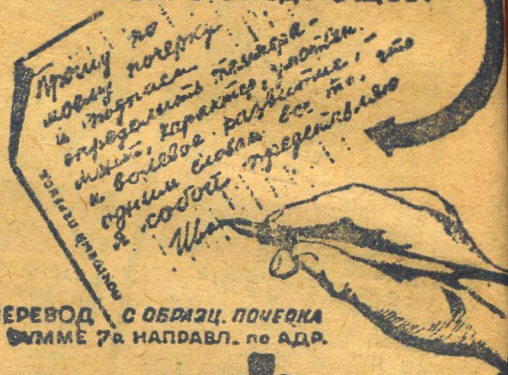 Прошу по
моему почерку
и подписи
определить темпера-
мент, характер, умствен.
и волевое развитие, -
одним словом все то, что
я собой представляю
Ив
ПОЧТОВЫЙ ПЕРЕВОД
ПЕРЕВОД С ОБРАЗЦ. ПОЧЕРКА
СУММЕ 7р НАПРАВЛ. по АДР.